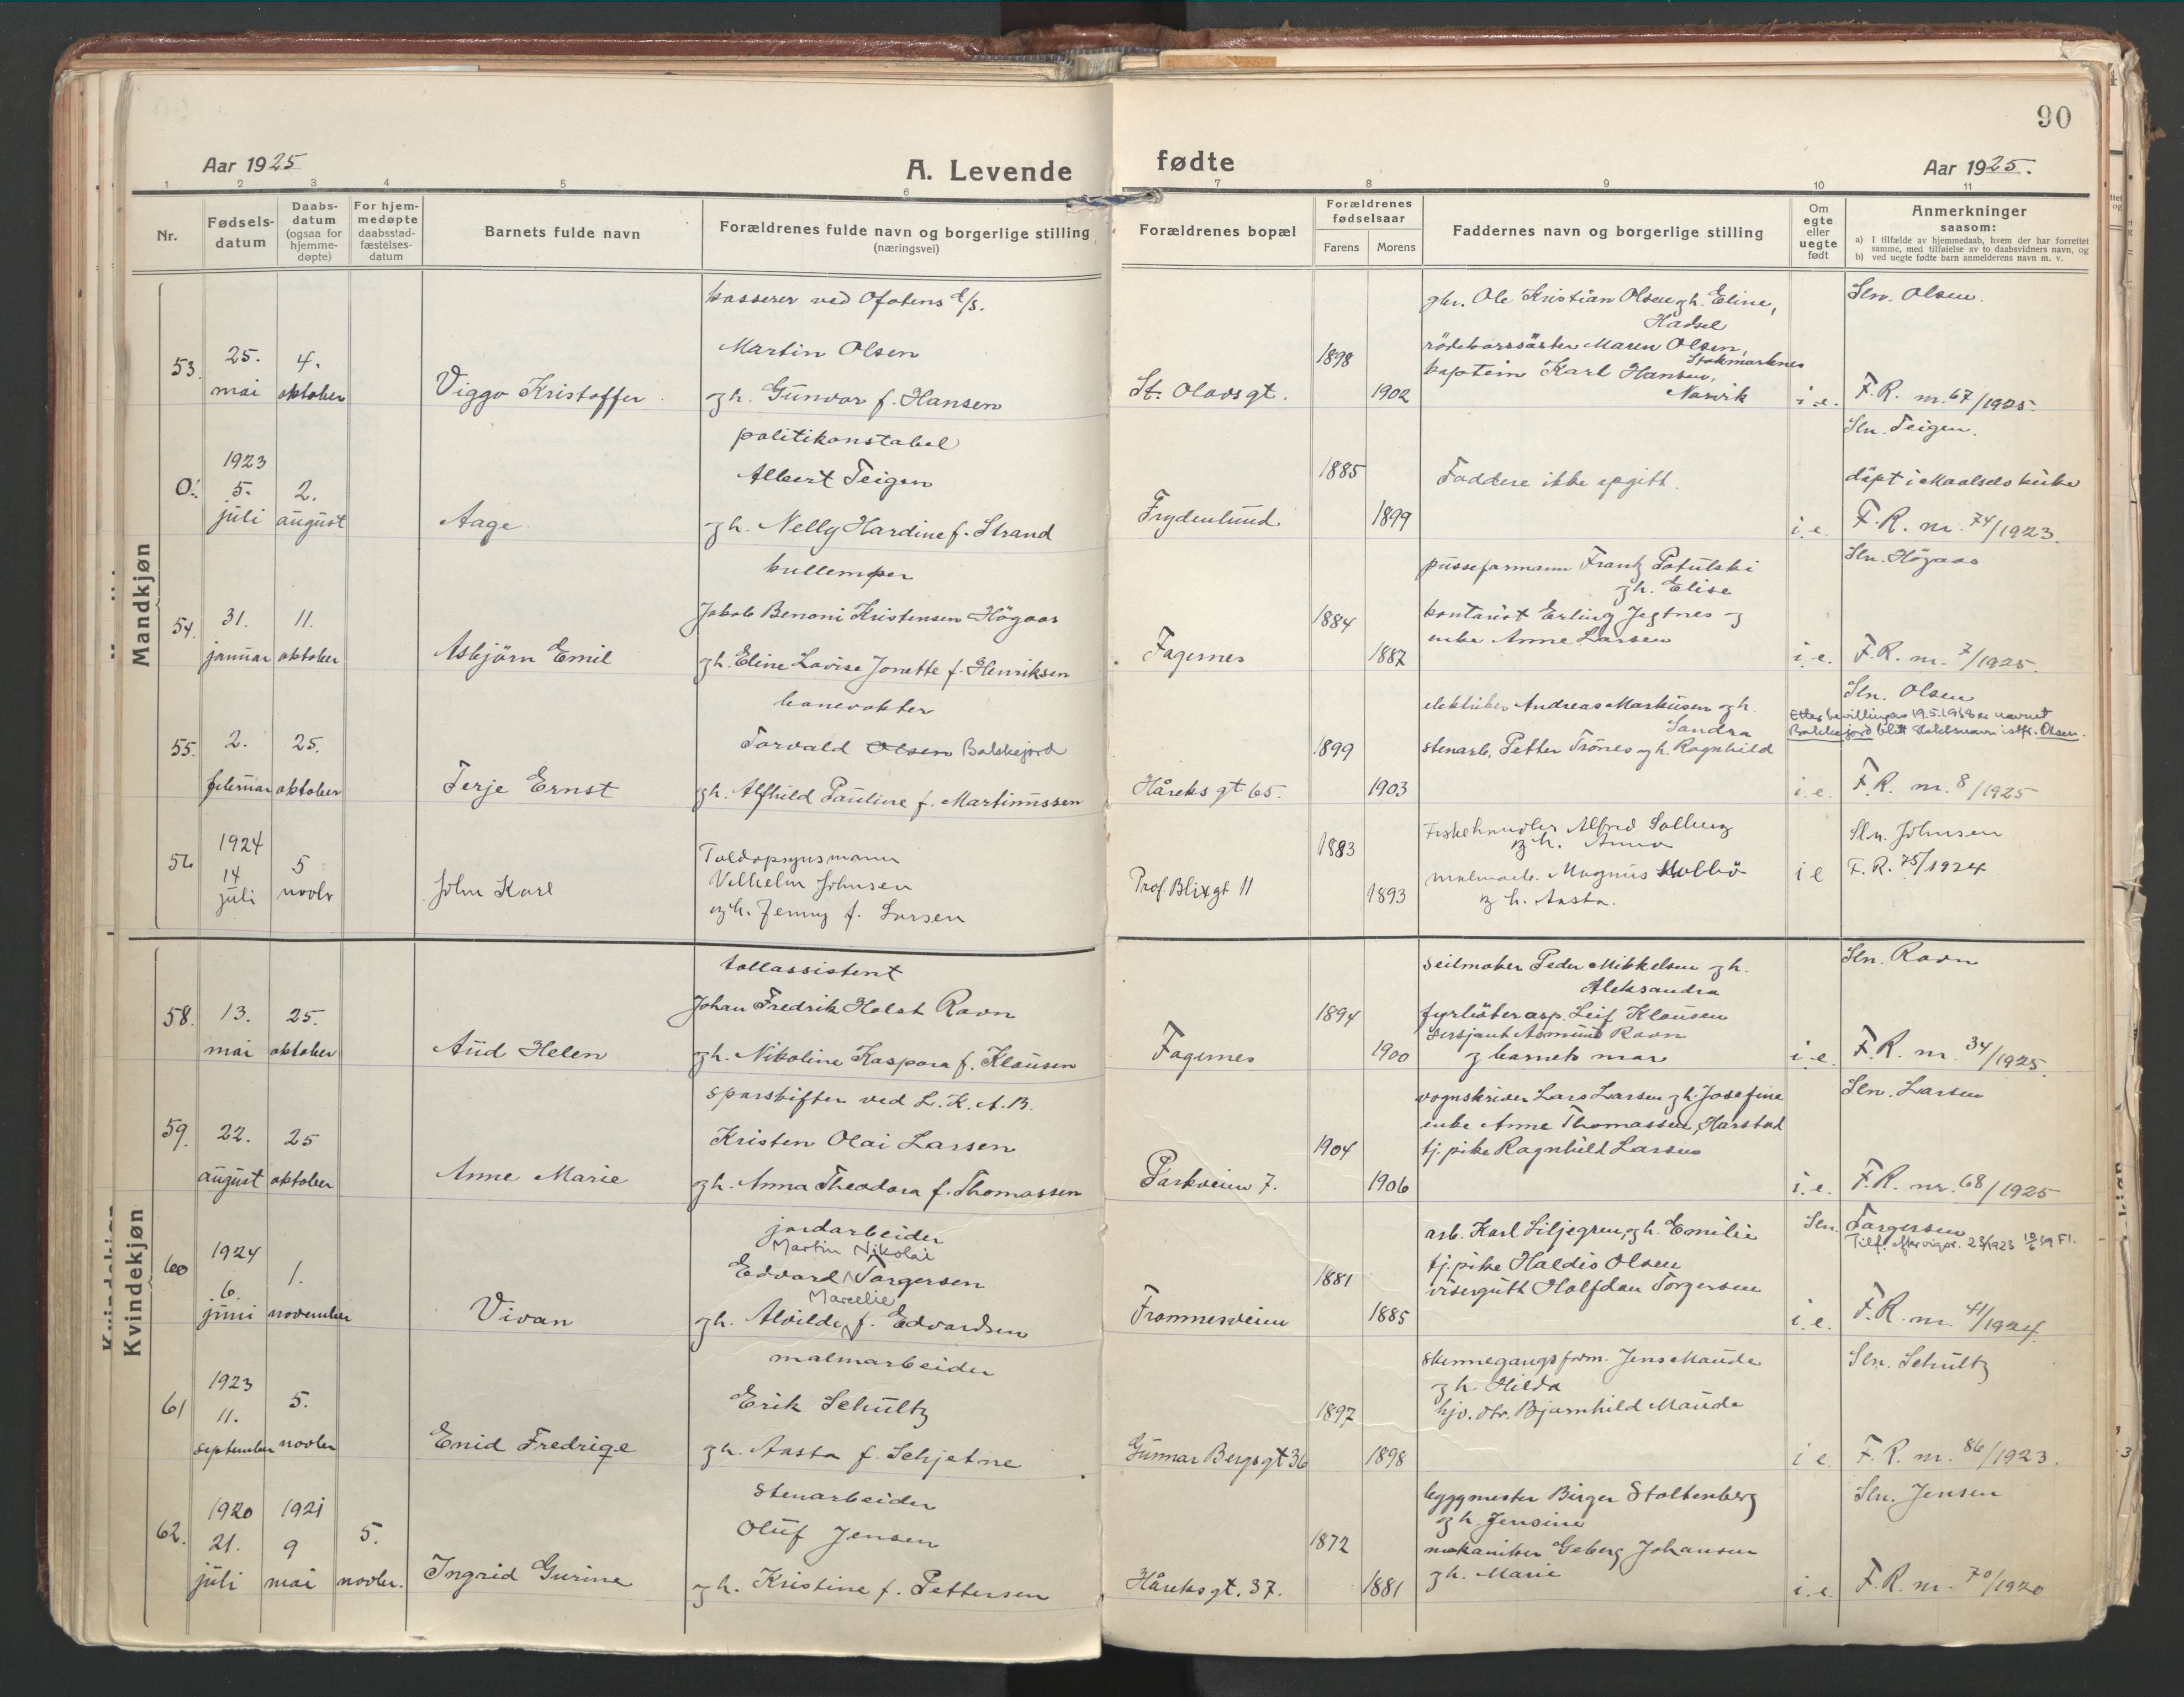 90
Aar 1925
A. Levende fødte
Aar 1925.
1 2 3 4 5 6 7 8 9 10 11
Nr.
Fødsels-
datum
Daabs-
datum
(ogsaa for
hjemme-
døpte)
For hjem-
medøpte
daabsstad-
fæstelses-
datum
Barnets fulde navn
Forældrenes fulde navn og borgerlige stilling
(næringsvei)
Forældrenes bopæl
Forældrenes
fødselsaar
Farens Morens
Faddernes navn og borgerlige stilling
Om
egte
eller
uegte
født
Anmerkninger
saasom:
a) I tilfælde av hjemmedaab, hvem der har forrettet
samme, med tilføielse av to daabsvidners navn, og
b) ved uegte fødte barn anmelderens navn m. v.
Mandkjøn
53.
25.
mai
4.
oktober
Viggo Kristoffer
kasserer ved Ofotens
Martin Olsen
gh. Gunvor f. Hansen
St. Olavs gt.
1898
1902
Ole Kristian Olsen gh. Eline,
Hadsel
rödekorssöster Maren Olsen,
Stokmarknes
kaptein Karl Hansen,
Narvik
i. e.
Sln. Olsen.
F.R. nr. 67/1925.
0.
1923
5.
juli
2.
august
Aage
politikonstabel
Albert Teigen
gh. Nelly Hardine f. Strand
Frydenlund
1885
1899
Faddere ikke opgitt.
i. e.
Sln. Teigen.
döpt i Maalselv kirke
F.R. nr. 74/1923.
54.
31.
januar
11.
oktober
Asbjörn Emil
kullemper
Jakob Benoni Kristensen Högaas
gh. Eline Lovise Jonette f. Henriksen
Fagernes
1884
1887
pusseformann Frantz Potulski
gh. Elise
kontorist Erling Jegtnes og
enke Anne Larsen
i. e.
Sln. Högaas
F.R. nr. 7/1925.
55.
2.
februar
25.
oktober
Terje Ernst
banevokter
Torvald Olsen Balskejord
gh. Alfhild Pauline f. Martinussen
Håreks gt 65.
1899
1903
elektriker Andreas Markussen gh.
Sandra
stenarb. Petter Trönes gh. Ragnhild
i. e.
Sln. Olsen
Etter bevilling av 19.5.1938 er navnet
blitt slektsnavn istf. Olsen.
F.R. nr. 8/1925
56
1924
14
juli
5
novbr
John Karl
Toldopsynsmann
Vilhelm Johnsen
og h. Jenny f. Larsen
Prof. Blixgt 11
1883
1893
Fiskehandler Alfred Solberg
og h. Anna
malmarb. Magnus
og h. Aasta.
i e
Sln. Johnsen
F.R. 75/1924
Kvindekjøn
58.
13.
mai
25.
oktober
Aud Helen
tollassistent
Johan Fredrik Holst Ravn
gh. Nikoline Kaspara f. Klausen
Fagernes
1894
1900
seilmaker Peder Mikkelsen gh.
Aleksandra
fyrböterasp. Leif Klausen
sersjant Asmund Ravn
g barnets mor
i. e.
Sln. Ravn
F.R. nr. 34/1925.
59.
22.
august
25
oktober
Anne Marie
sporskifter ved L.K.A.B.
Kristen Olai Larsen
gh. Anna Theodora f. Thomassen
Parkveien 7.
1904
1906
vognskriver Lars Larsen gh. Josefine
enke Anne Thomassen, Harstad
tj. pike Ragnhild Larsen
i. e.
Sln. Larsen
F.R. nr. 68/1925
60
1924
6.
juni
1.
november
Vivan
jordarbeider
Martin Nikolai
Edvard Torgersen
Marcelie
gh. Alvilde f. Edvardsen
Framnesveien
1881
1885
arb. Karl Liljegren, gh. Emilie
tj. pike Haldis Olsen
visergutt Halfdan Torgersen
i. e.
Sln. Torgersen
F.R. nr. 41/1924.
61
1923
11.
september
5.
novber
Enid Fredrige
malmarbeider
Erik Schultz
gh. Aasta f. Schjetne
Gunnar Bergsgt 36
1897
1898
skinnegangsform. Jens Maude
gh. Hilda
hjv. dtr. Bjarnhild Maude
i e.
Sln. Schultz
F.R. nr. 86/1923.
62.
1920
21.
juli
1921
9
mai
5.
novbr.
Ingrid Gurine
stenarbeider
Oluf Jensen
gh. Kristine f. Pettersen
Håreksgt. 37.
1872
1881
byggmester Birger Stoltenberg
gh. Jensine
mekaniker Geberg Johansen
gh. Marie
i. e.
Sln. Jensen
F.R. nr. 70/1920